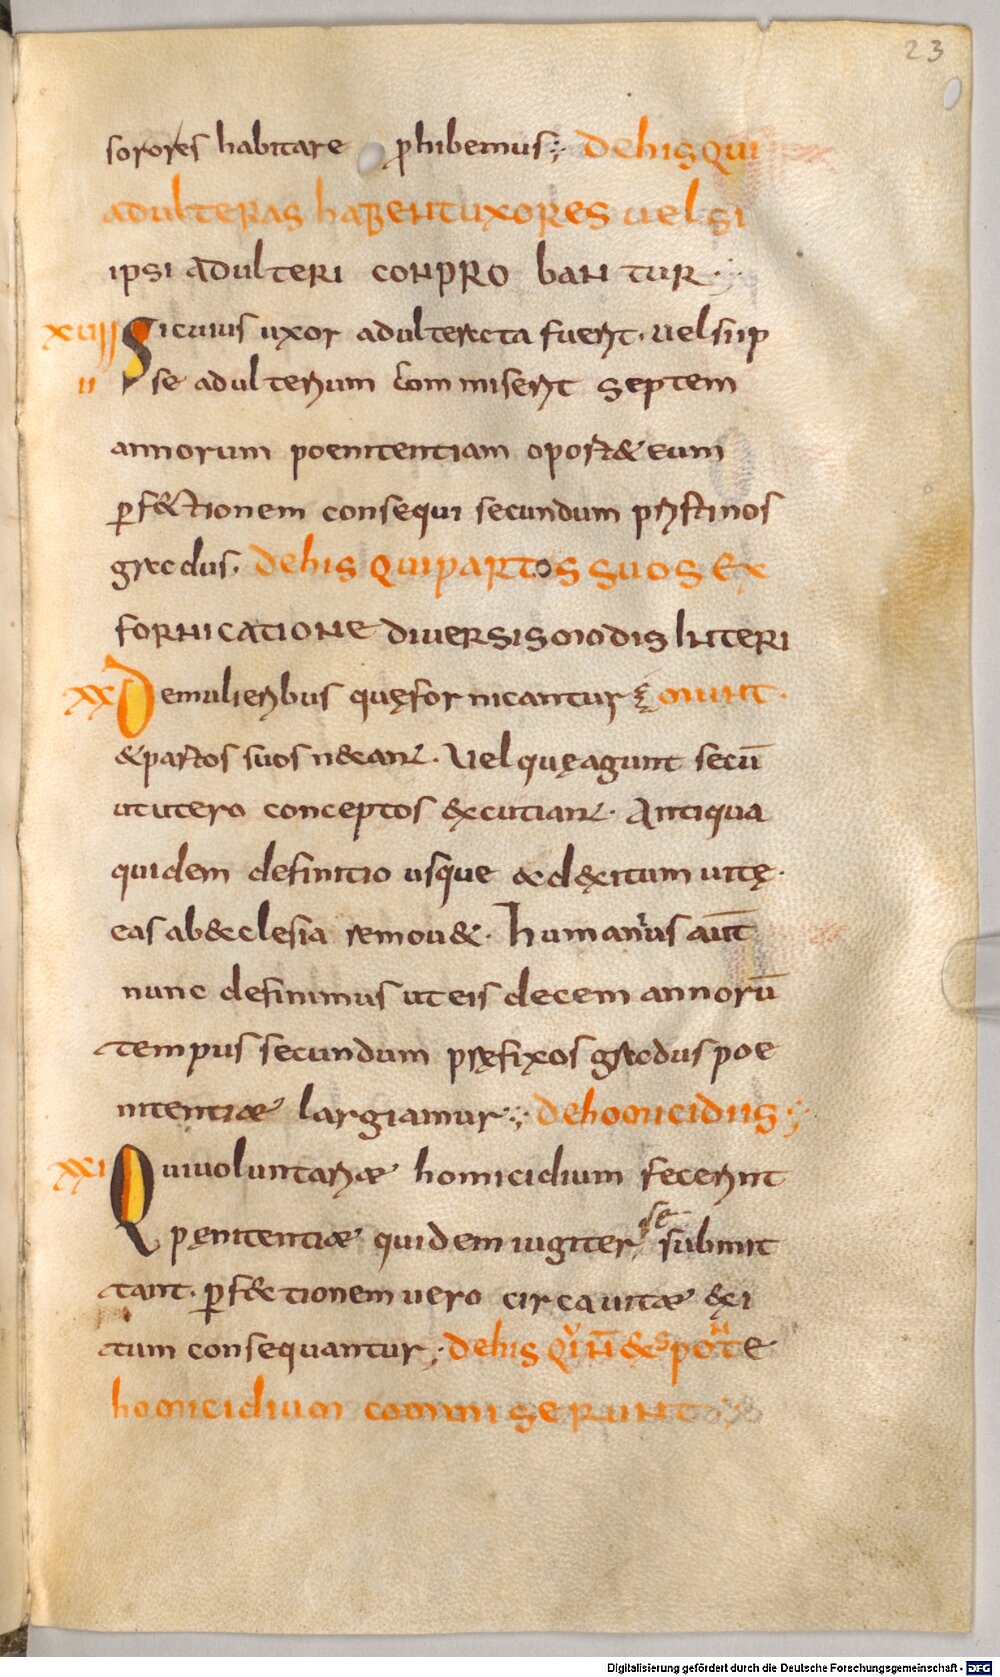 23
sorores habitare ꝓhibemus; DE HIS QUI
ADULTERAS HABENT UXORES UEL SI
IPSI ADULTERI CONPROBANTUR;
XUIIII Si cuius uxor adulterata fuerit. uel siip
se adulterium commiserit septem
annorum poenitentiam oport& eum
ꝑf&ctionem consequi secundum pristinos
gradus. DE HIS QUI PARTOS SUOS EX
FORNICATIONE DIVERSIS MODIS INTERI
XX De mulieribus quę fornicantur MUNT.
& partos suos necant. Uel quę agunt secū
ut utero conceptos excutiant. Antiqua
quidem definitio usque ad exitum uitę.
eas ab eclesia remou&. humanius aut̄
nunc definimus ut eis decem annorū
tempus secundum pręfixos gradus poe
nitentiae largiamur; DE HOMICIDIIS;
XXI Qui uoluntariae homicidium fecerint
pęnitentiae quidem iugiter se submit
tant. ꝑfectionem uero circa uitae exi
tum consequantur; DE HIS QUI N̄ SPONTE
HOMICIDIUM COMMISERUNT
Digitalisierung gefördert durch die Deutsche Forschungsgemeinschaft - DFG